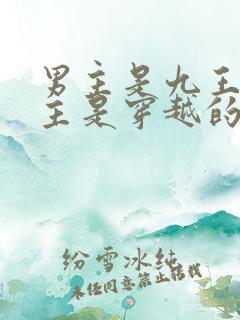 男主是九王
主是穿越的
纷雪冰纯
未经同意禁止转载